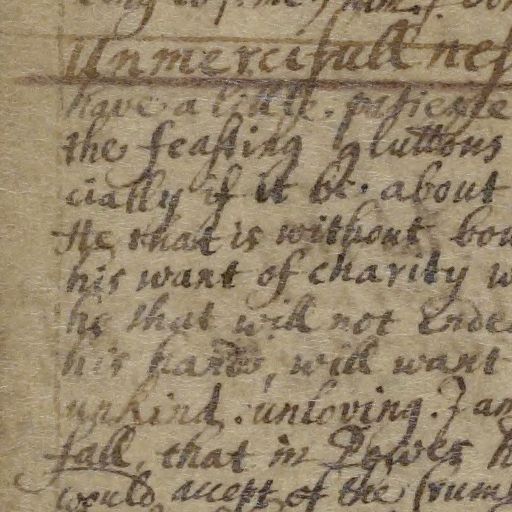 Unmercifull nes
have a little patience
the feasting gluttons
cially if it be about
He that is without bow
his want of charity w
he that will not endea
his hands, will want
unkind. unloving. I am
fall, that in Dowes h
would accept of the crums